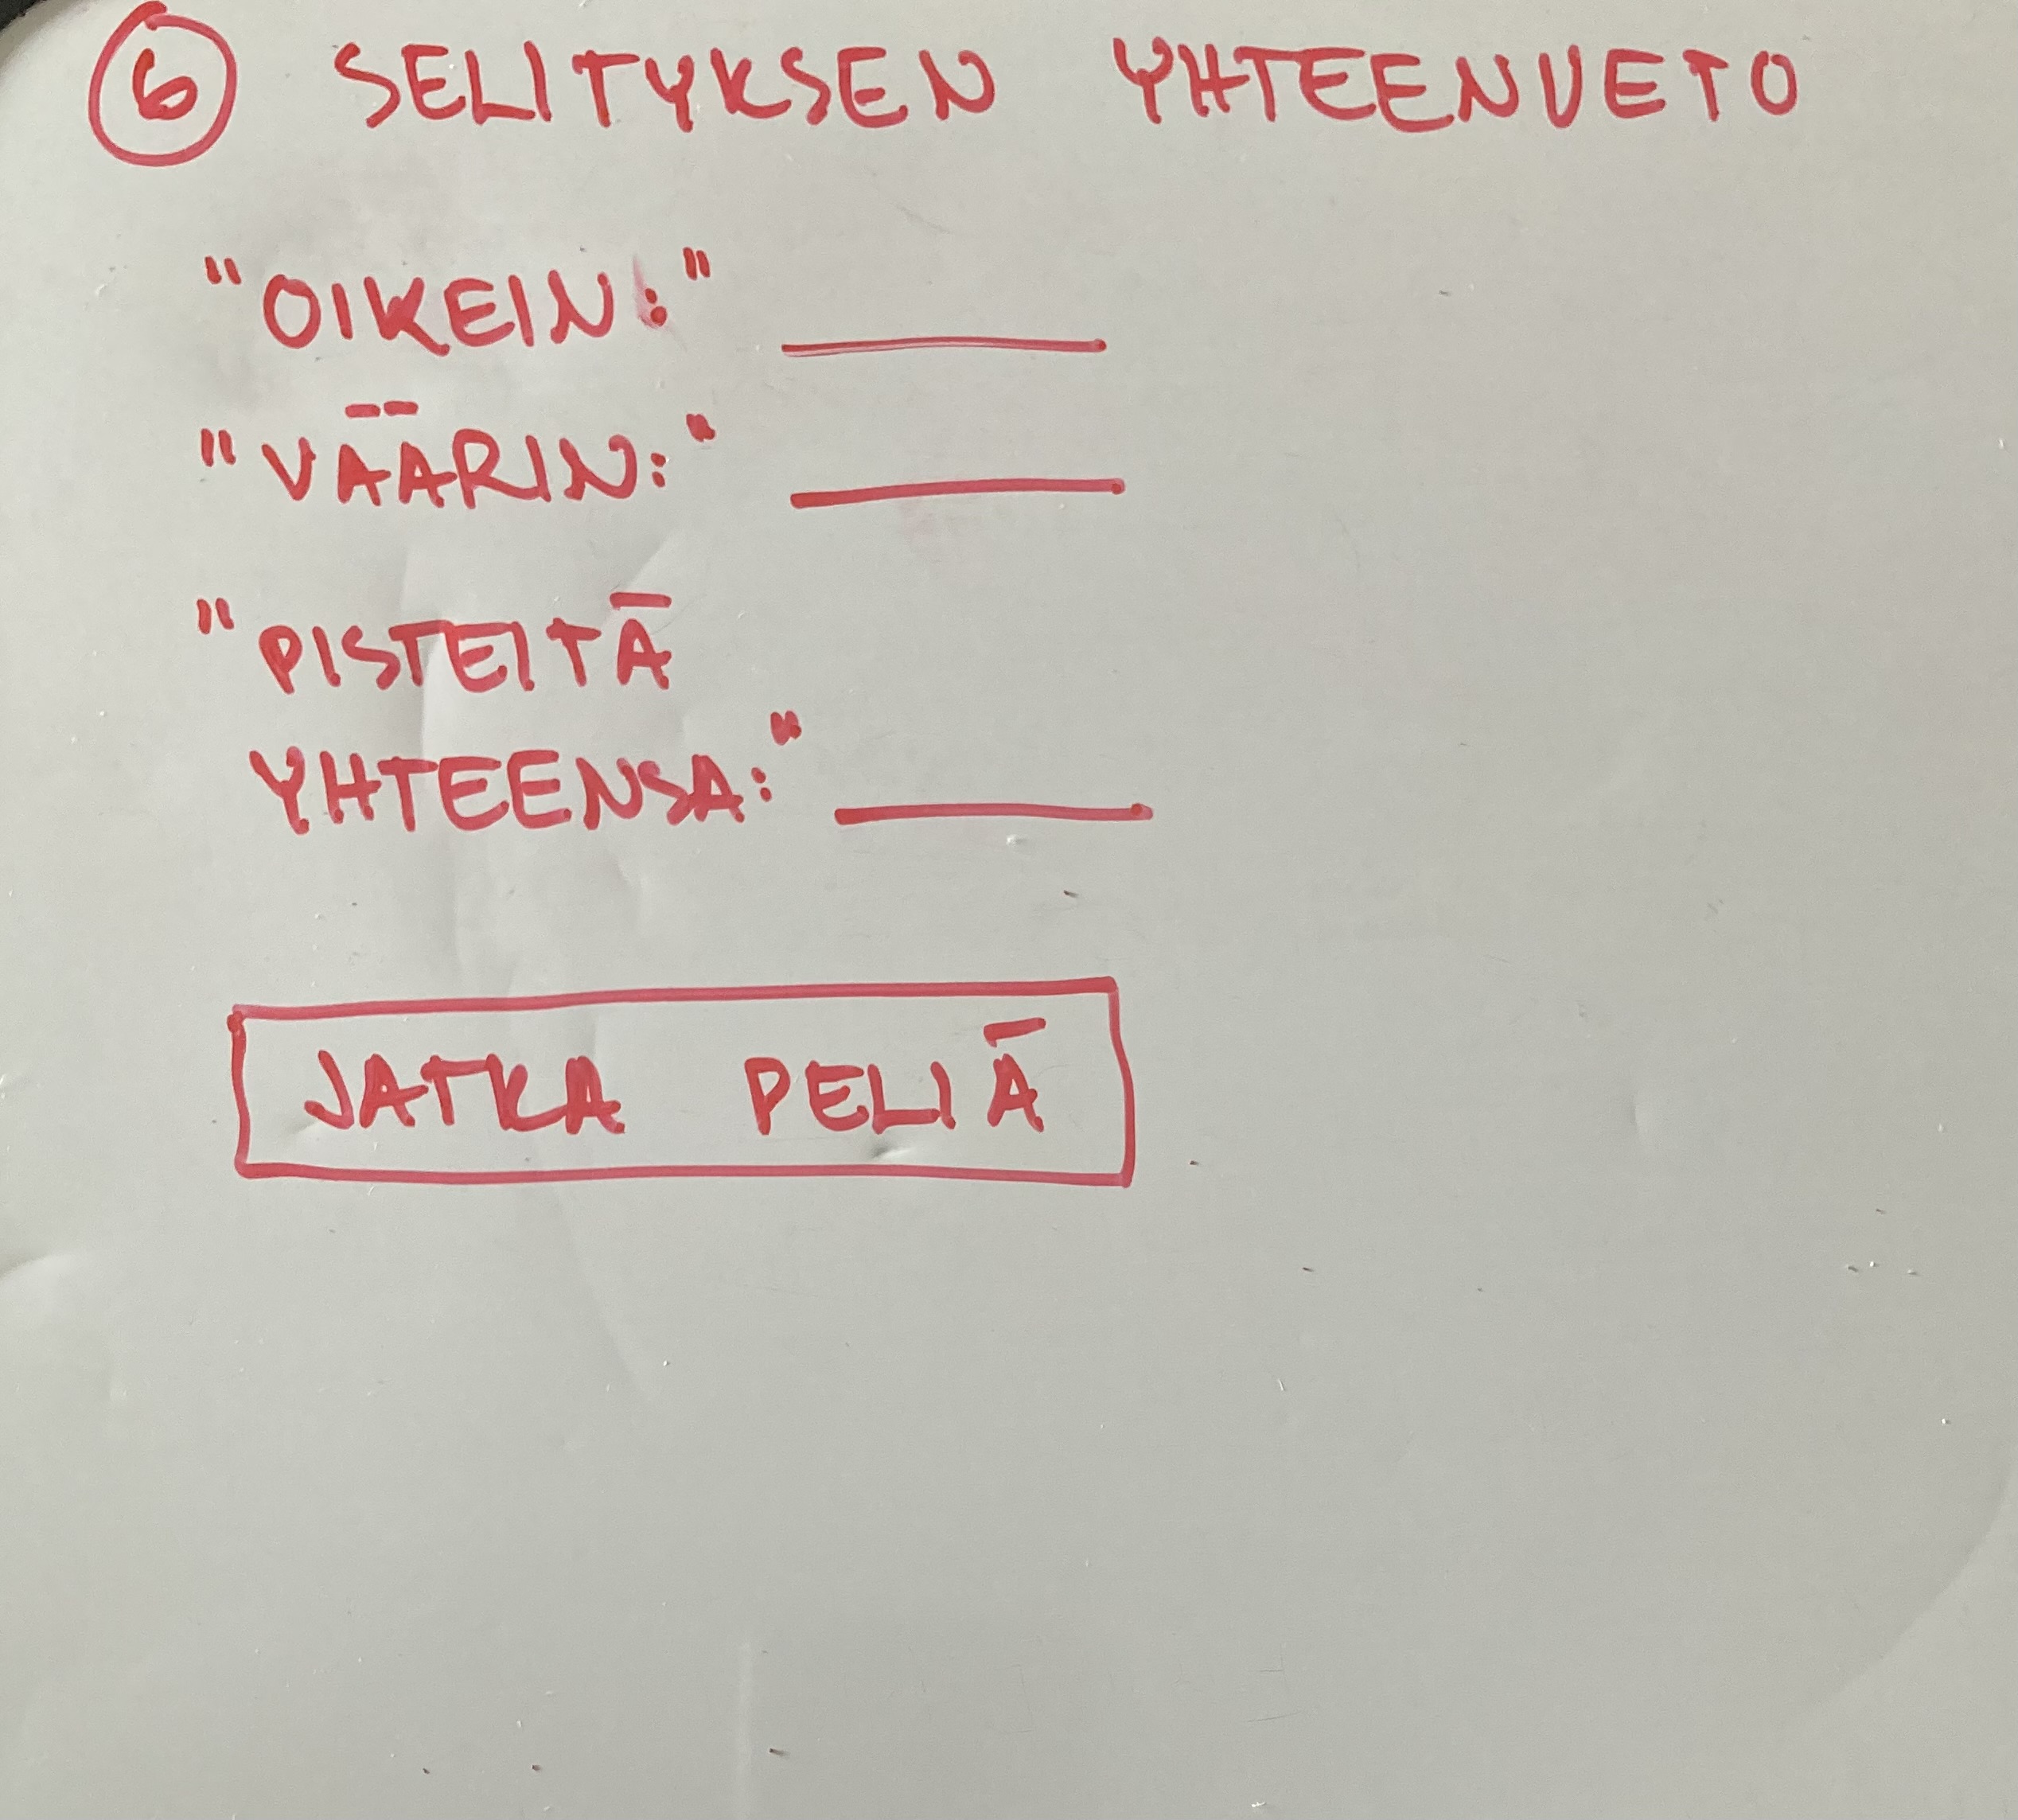 6 SELITYKSEN YHTEENVETO
"OIKEIN:" ______
"VÄÄRIN:" ______
"PISTEITÄ
YHTEENSA:" ______
JATKA PELIÄ